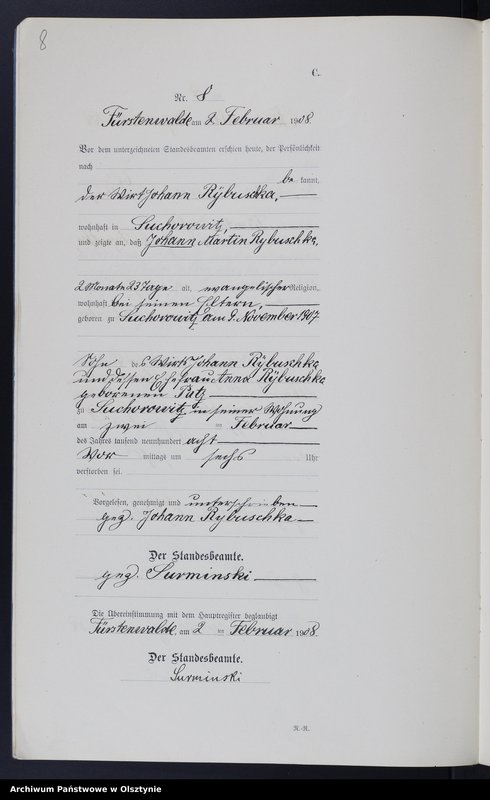 8
C.
Nr. 8
Fürstenwalde am 2 Februar 1908.
Vor dem unterzeichneten Standesbeamten erschien heute, der Persönlichkeit
nach
be kannt,
der Wirt Johann Rÿbuschka,
wohnhaft in Suchorowitz,
und zeigte an, daß Johann Martin Rybuschka,
2 Monate 23 Tage alt, evangelischer Religion,
wohnhaft bei seinen Eltern,
geboren zu Suchorowitz am 9. November 1907
Sohn des Wirts Johann Rÿbuschka
und dessen Ehefrau Anna Rÿbuschka
geborenen Putz
zu Suchorowitz, in seiner Wohnung
am zwei ten Februar
des Jahres tausend neunhundert acht
Vor mittags um sechs Uhr
verstorben sei.
Vorgelesen, genehmigt und unterschrieben
gez. Johann Rybuschka
Der Standesbeamte.
gez. Surminski
Die Übereinstimmung mit dem Hauptregister beglaubigt
Fürstenwalde, am 2 ten Februar 1908.
Der Standesbeamte.
Surminski
R.-R.
Archiwum Państwowe w Olsztynie